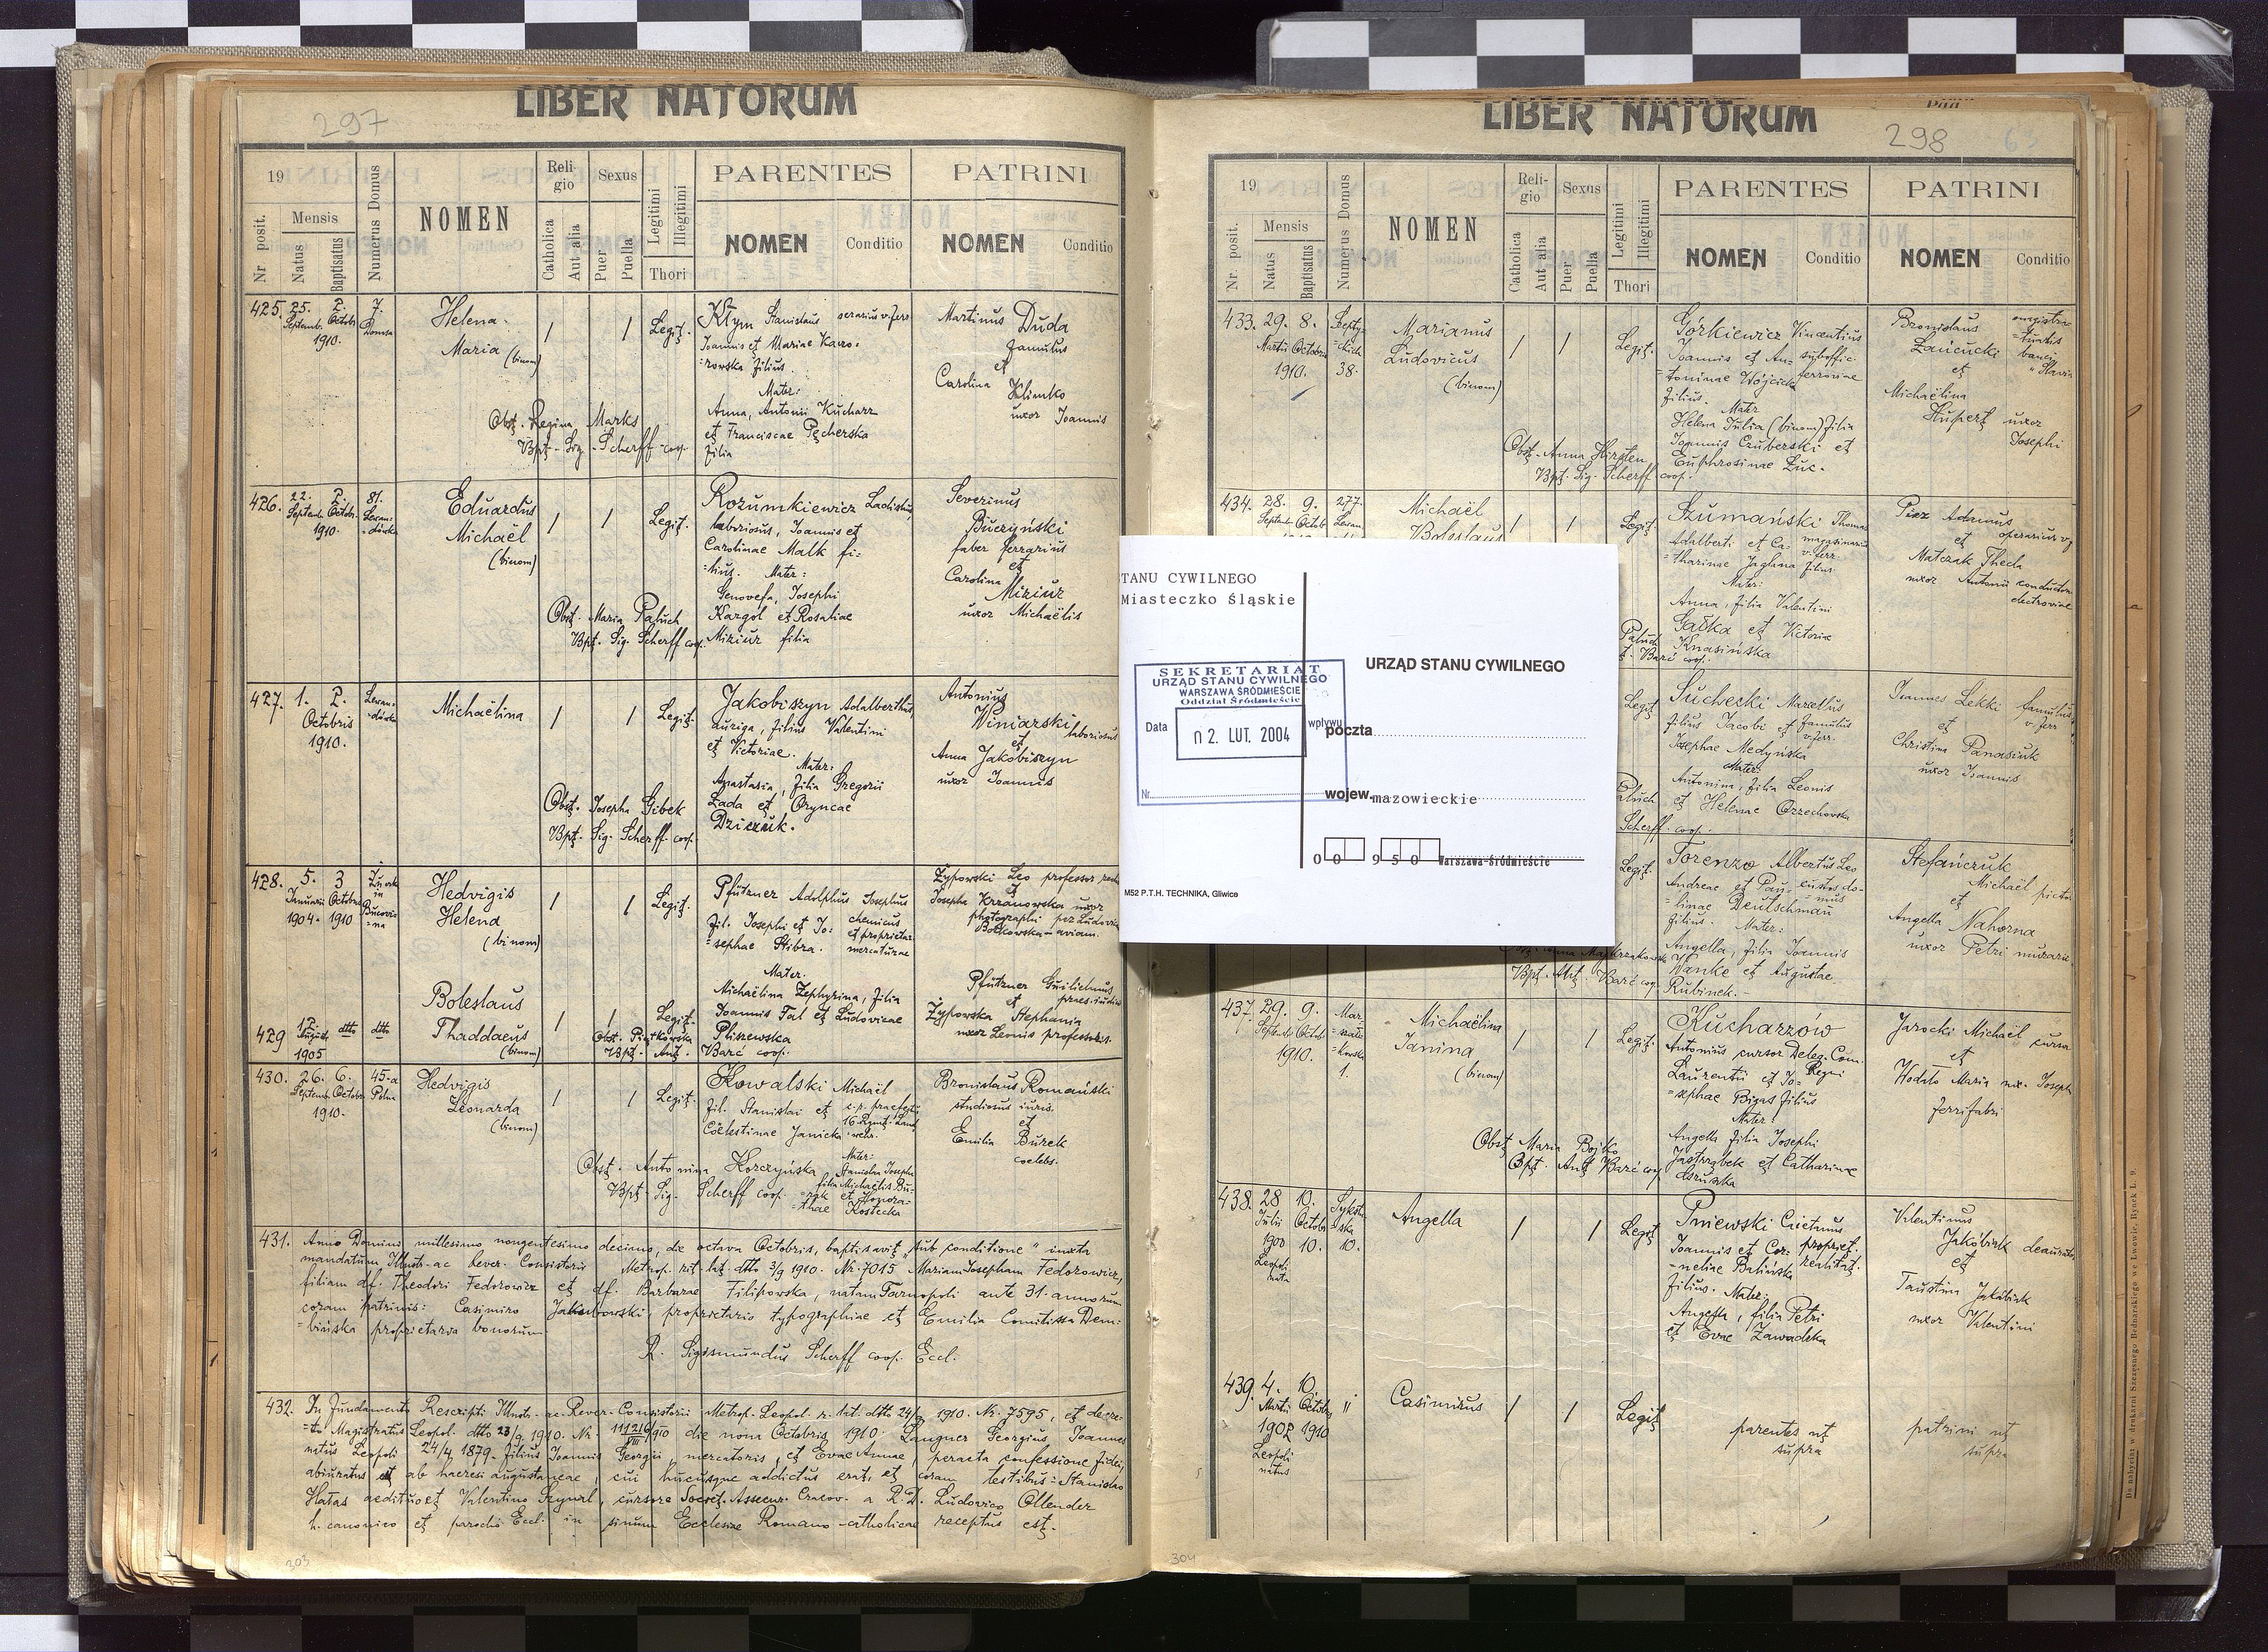 297
LIBER NATORUM
19
Nr posit.
Mensis
Natus
Baptisatus
Numerus Domus
NOMEN
Religio
Catholica
Aut alia
Sexus
Puer
Puella
Legitimi
Illegitimi
Thori
PARENTES
NOMEN
Conditio
PATRINI
NOMEN
Conditio
425. 25. Septemb. 2. Octobr. 1910.
7.
Helena
Maria (binom)
Legit.
Kłym Stanislaus
Joannis et Mariae
filius.
Mater:
Anna, Antonii Kucharz
et Franciscae Pęcherska
filia
Martinus Duda
famulus
et
Carolina Klimko
uxor Joannis
Obst. Regina Marks
Bpt. Sig. Scherff coop.
426. 22. Septemb. 2. Octobr. 1910.
81.
Eduardus
Michaël
(binom)
Legit.
Rozumkiewicz Ladislaus,
laboriosus, Joannis et
Carolinae Malk fi-
=lius. Mater:
Genovefa, Josephi
Kargol et Rosaliae
Miziur filia
Severinus
Buczyński
faber ferrarius
et
Carolina Miziur
uxor Michaëlis
Obst. Maria Paluch
Bpt. Sig. Scherff coop.
427. 1. 2. Octobris 1910.
Michaëlina
Legit.
Jakobiszyn Adalberthus,
auriga, filius Valentini
et Victoriae.
Mater:
Anastasia, filia Gregorii
Łada et Oryncae
Dziczuk.
Antonius
Winiarski laboriosus
et
Anna Jakobiszyn
uxor Joannis
Obst. Josepha Gibek
Bpt. Sig. Scherff coop.
428. 5. Januarii 1904. 3 Octobris 1910
Hedvigis
Helena
(binom)
Legit.
Pfützner Adolphus Josephus
fil. Josephi et Jo: chemicus
=sephae Stibra. et proprietar. mercaturae
Mater.
Michaëlina Zephyrina, filia
Joannis Tal et Ludovicae
Pliszewska
Żypowski Leo professor
et
Josepha Krzanowska uxor
photographi
429 12. August. 1905 dtto dtto
Boleslaus
Thaddaeus
(binom)
Legit.
Pfützner Guilielmus
et
Żypowska Stephania
uxor Leonis professoris.
Obst. Piątkowska
Bpt. Ant. Barć coop.
430. 26. Septemb. 6. Octobr. 1910.
45-a
Hedvigis
Leonarda
(binom)
Legit.
Kowalski Michaël
fil. Stanislai et
Coelestinae Janicka
Mater:
Stanislaa Josepha
filia Michaëlis Bu-
=rak et Honora-
=thae Kostecka
Bronislaus Romański
studiosus iuris.
et
Emilia Burek
coelebs.
Obst. Antonina Korczyńska
Bpt. Sig. Scherff coop.
431. Anno Domini millesimo nongentesimo decimo, die octava Octobris, baptisavit "sub conditione" iuxta
mandatum Illustr. ac Rever. Consistorii Metrop. rit. lat. dtto 3/9 1910. Nr. 7015 Mariam Josepham Fedorowicz,
filiam df. Theodori Fedorowicz et df. Barbarae Filipowska, natam Tarnopoli ante 31. annorum
coram patrinis: Casimiro Jakubowski, proprietario typographiae et Emilia Comitissa Dem:
=bińska proprietaria bonorum
R. Sigismundus Scherff coop. Eccl.
432. In fundamento Rescripti Illustr. ac Rever. Consistorii Metrop. Leopol. r. lat. dtto 24/9 1910. Nr. 7595, et decre-
=to Magistratus Leopol. dtto 23/9 1910. Nr. 111216/VIII 910 die nona Octobris 1910: Laugner Georgius Joannes
natus Leopoli 24/4 1879. filius Joannis Georgii mercatoris, et Evae Annae, peracta confessione fidei,
abiuratus et ab haeresi augustanae, cui hucusque addictus erat, et coram testibus: Stanislao
Hałas aedituo et Valentino Szynal, cursore Societ. Assecur. Cracov. a R. D. Ludovico Ollender
h. canonico et parocho Eccl. in sinum Ecclesiae Romano-catholicae receptus est.
303
298
63
LIBER NATORUM
19
Nr. posit.
Mensis
Natus
Baptisatus
Numerus Domus
NOMEN
Religio
Catholica
Aut alia
Sexus
Puer
Puella
Legitimi
Illegitimi
Thori
PARENTES
NOMEN
Conditio
PATRINI
NOMEN
Conditio
433. 29. Martii 8. Octobris 1910.
38.
Marianus
Ludovicus
(binom)
Legit.
Górkiewicz Vincentius
Joannis et An-
=toninae Wójcicka
filius.
Mater
Helena Julia (binom) filia
Joannis Czuberski et
Euphrosinae Łuc.
Bronislaus
Łańcucki
et
Michaëlina
Hupert uxor
Josephi
Obst. Anna Hirsten
Bpt. Sig. Scherff coop.
434. 28. Septemb. 9. Octob.
277.
Michaël
Boleslaus
Legit.
Szumański Thomas
Adalberti et Ca-
=tharinae Jaglana filius
Mater:
Anna, filia Valentini
Gałka et Victoriae
Knasińska
Piez Adamus
operarius
et
Matczak Thecla
uxor Antonii conductoris
electroviae
Paluch
Barć coop.
Legit.
Suchecki Marcellus
filius Jacobi et famulus
Josephae Medyńska
Mater:
Antonina, filia Leonis
et Helenae Orzechowska
Joannes Lekki famulus
v. ferr
et
Christina Panasiuk
uxor Joannis
Paluch
Scherff coop.
Legit.
Torenzo Albertus Leo
Andreae et Pau- custos do-
=linae Deutschman =mus
filius. Mater:
Angella, filia Joannis
Wanke et Augustae
Rubinek.
Stefańczuk
Michaël pictor
et
Angella Nahorna
uxor Petri murarii
Bpt. Ant. Barć coop.
437. 29. Septemb. 9. Octob. 1910.
1.
Michaëlina
Janina
(binom)
Legit.
Kucharzów
Antonius cursor Deleg. Com.
Laurentii et Jo- Regni
=sephae Bigas filius
Mater:
Angella filia Josephi
Jastrzębek et Catharinae
Jarocki Michaël cursor
et
Wodsto Maria ux. Josephi
ferrifabri
Obst. Maria Bojko
Bpt. Ant. Barć coop.
438. 28 Julii 1900 Leopoli nata 10. Octobr. 10.
10.
Angella
Legit.
Pniewski Caietanus
Joannis et Cor: propriet.
=neliae Balińska realitat.
filius. Mater.
Angella, filia Petri
et Evae Zawadzka
Valentinus
Jakóbiak
et
Faustina Jakóbiak
uxor Valentini
439. 4. Martii 1902 Leopoli natus 10. Octobris 1910 "
Casimirus
Legit
parentes ut
supra
patrini ut
supra
304
TANU CYWILNEGO
Miasteczko Śląskie
SEKRETARIAT
URZĄD STANU CYWILNEGO
WARSZAWA ŚRÓDMIEŚCIE
Oddział Śródmieście
Data
02. LUT. 2004
wpływu
Nr
URZĄD STANU CYWILNEGO
poczta
wojew. mazowieckie
00 950 Warszawa-Śródmieście
M52 P.T.H. TECHNIKA, Gliwice
Do nabycia w drukarni Szczęsnego Bednarskiego we Lwowie, Rynek L. 9.